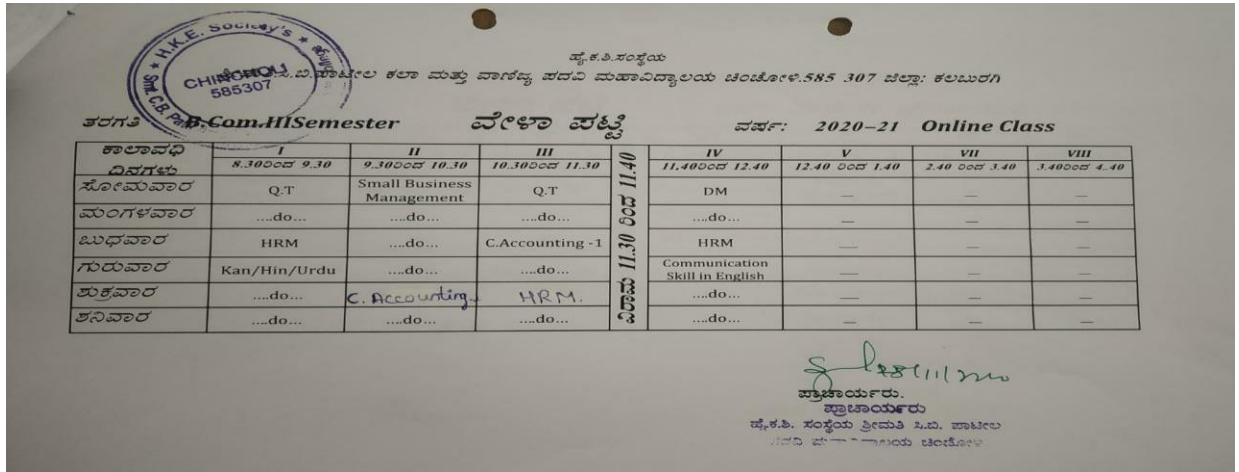 H.K.E. Society's
CHINCHOLI
585307
ಹೈ.ಕ.ಶಿ.ಸಂಸ್ಥೆಯ
ಸಿ.ಬಿ.ಪಾಟೀಲ ಕಲಾ ಮತ್ತು ವಾಣಿಜ್ಯ ಪದವಿ ಮಹಾವಿದ್ಯಾಲಯ ಚಿಂಚೋಳಿ.585 307 ಜಿಲ್ಲಾ: ಕಲಬುರಗಿ
ತರಗತಿ B.Com.IIISemester ವೇಳಾ ಪಟ್ಟಿ ವರ್ಷ: 2020-21 Online Class
ಕಾಲಾವಧಿ I II III IV V VII VIII
ದಿನಗಳು 8.30ರಿಂದ 9.30 9.30ರಿಂದ 10.30 10.30ರಿಂದ 11.30 11.40ರಿಂದ 12.40 12.40 ರಿಂದ 1.40 2.40 ರಿಂದ 3.40 3.40ರಿಂದ 4..40
ವಿರಾಮ 11.30 ರಿಂದ 11.40
ಸೋಮವಾರ Q.T Small Business Management Q.T DM — — —
ಮಂಗಳವಾರ ....do... ....do... ....do... ....do... — — —
ಬುಧವಾರ HRM ....do... C.Accounting -1 HRM — — —
ಗುರುವಾರ Kan/Hin/Urdu ....do... ....do... Communication Skill in English — — —
ಶುಕ್ರವಾರ ....do... C. Accounting HRM. ....do... — — —
ಶನಿವಾರ ....do... ....do... ....do... ....do... — — —
ಪ್ರಾಚಾರ್ಯರು.
ಪ್ರಾಚಾರ್ಯರು
ಹೈ.ಕ.ಶಿ. ಸಂಸ್ಥೆಯ ಶ್ರೀಮತಿ ಸಿ.ಬಿ. ಪಾಟೀಲ
ಪದವಿ ಚಿಂಚೋಳಿ